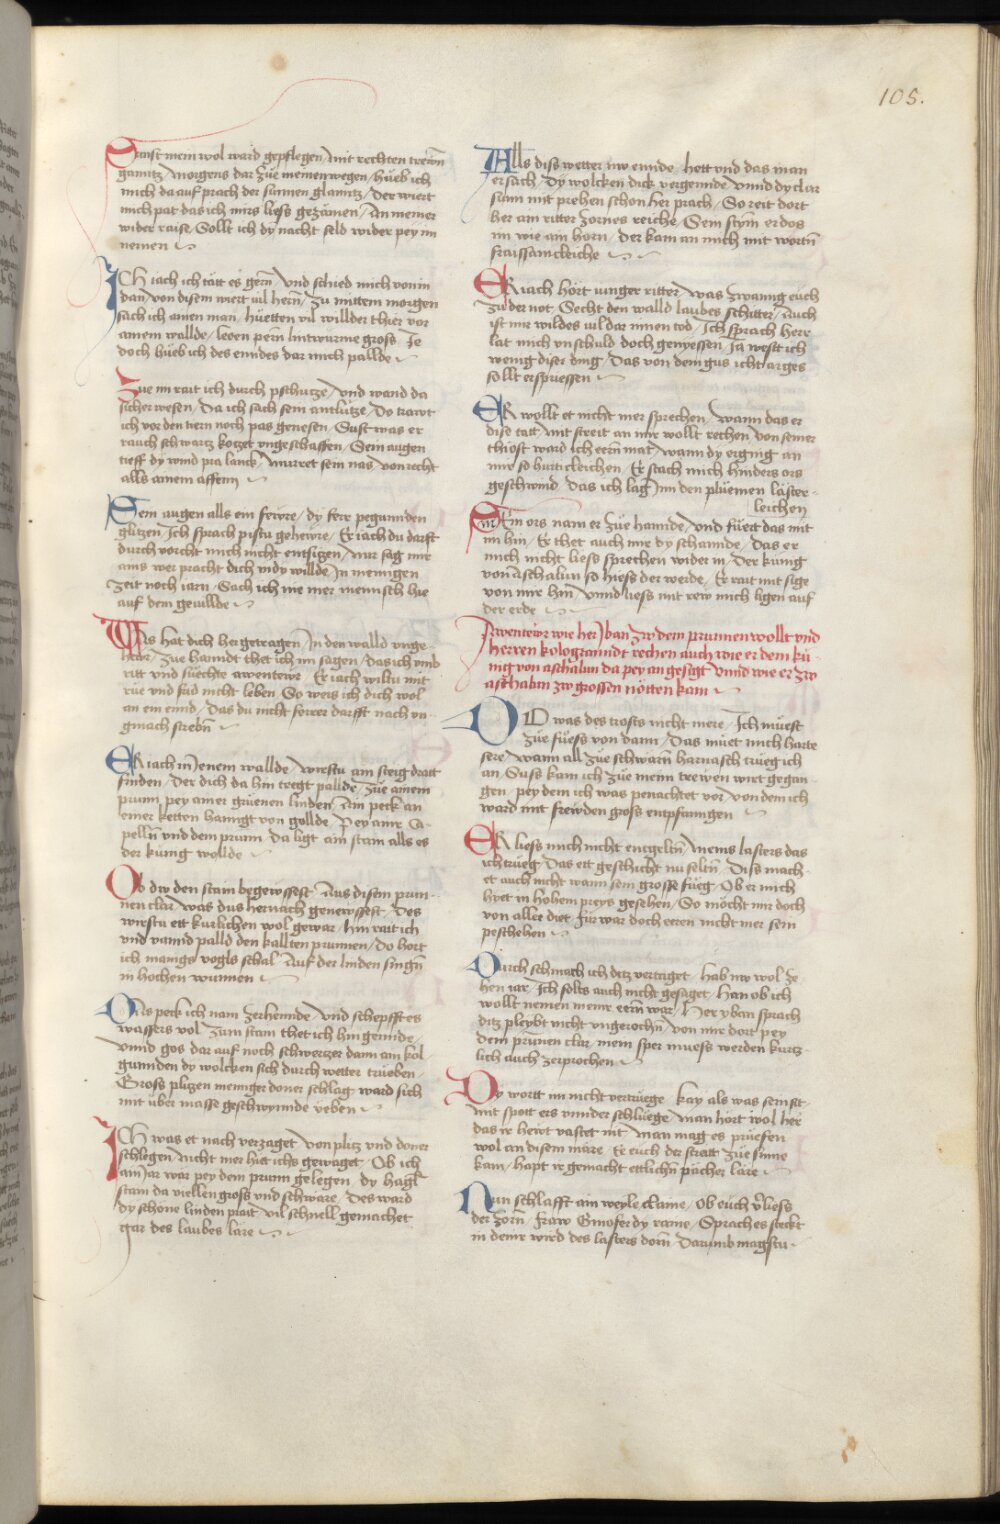 105.
Sunst mein wol ward gepflegen / mit rechten trewn
ganntz / Morgens dar zue meinen wegen / hueb ich
mich da auf prach der sunnen glanntz / Der wiert
mich pat das ich mirs liess gezämen / An meiner
wider raise / Sollt ich dy nacht seld wider pey im
nemen
ICh iach ich tätt es gern / Und schied mich von im
dan / von disem wiert vil hern / Zu mittem morgen
sach ich ainen man / huetten vil willder thier vor
ainem wallde / leoen pern lintwurme gross / Je
doch hueb ich des enndes dar mich pallde
Zue im rait ich durch pschutze / Und wand da
sicher wesen / Da ich sach sein antlütze / Do trawt
ich vor den tiern noch pas genesen / Sust was er
rauch schwartz kotzet ungeschaffen / Sein augen
tieff dy wind pra lanck / Murret sein nas / von recht
alls ainem affenn
Sein augen alls ein fewre / dy ferr pegunnden
glitzen / Ich sprach pistu gehewre / Er iach du darfft
durch vorcht mich nicht entsitzen / nur sag mir
ains wer pracht dich in dy willde / In mennigen
zeit noch iarn / Sach ich nie mer mennisch hie
auf dem gevillde
Was hat dich her getragen / In den walld unge-
hewr / Zue hanndt thet ich im sagen / Das ich umb
ritt und suechte awentewr / Er iach wiltu mit
rüe und frid nicht leben / So weis ich dich wol
an ein ennd / Das du nicht ferrer darfft nach un-
gmach strebn
ER iach in Jenem wallde / wirstu ain steig dratt
finden / Der dich da hin tregt pallde / Zue ainem
prunn / pey ainer grüenen linden / Ain peck an
einer ketten hanngt von gollde / Pey ainr Ca-
pelln und dem prunn / da ligt ain stain alls es
der kunig wollde
Ob dw den stain begewssest / Aus disem prun-
nen clar / was dus hernach geneussest / Des
wirstu ett kurlichen wol gewar / hin rait ich
und vannd palld den kallten prunnen / Do hort
ich manigs vogls schal / Auf der linden singn
in hochen wunnen
Das peck ich nam zerhennde / Und schepfft es
wassers vol / Zum stain thet ich hin gennde
unnd gos dar auf noch schwertzer dann ain kol
gunnden dy wolcken sich durch wetter trüeben
Gross plitzen meniger doner schlag / ward sich
mit über masse geschwynnde ueben
ICh was et nach verzaget / von plitz und doner
schlegen / Nicht mer hiet ichs gewaget / Ob ich
ain Jar wär pey dem prunn gelegen / dy hagl
stain da viellen gross und schwäre / Des ward
dy schöne linden prait / vil schnell gemachet
gar des laubes läre
Alls diss wetter nw ennde / hett und das man
ersach / Dy wolcken dick vergennde / unnd dy clar
sunn mit prehen schon her prach / So reit dort
her ain ritter zornes reiche / Sein stym erdos
im wie ain horn / Der kam an mich mit wortn
fraissamcleiche
ER iach hört iunger ritter / was zwanng euch
zu der not / Secht den walld laubes schitter / Auch
ist mir wildes vil dar innen tod / Ich sprach herr
lat mich unschuld doch geniessen / Ja west ich
wenig diser ding / Das von dem gus icht arges
sollt erspriessen
ER wollt et nicht mer sprechen / wann das er
dise tatt / Mit streit an mir wollt rechen / Von seiner
thiost ward ich eern mat / wann dy erging an
mir so hurticleichen / Er stach mich hinders ors
geschwind / das ich lag Inn den pluemen läster-
leichen
Mein ors nam er zue hannde / und füert das mit
im hin / Er thet auch mir dy schannde / Das er
mich nicht liess sprechen wider in / Der kunig
von Aschalun so hiess der werde / Er rait mit sige
von mir hin / Unnd liess mit rew mich ligen auf
der erde
Awentewr wie her Iban zw dem prunnen wollt und
herren kologranndt rechen auch wie er dem kü-
nig von aschalun da pey an gesigt unnd wie er zw
aschalun zw grossen nötten kam
DO was des trosts nicht mere / Ich müest
zue füess von dann / Das müet mich harte
sere / wann all zue schwarn harnasch trueg ich
an / Suss kam ich zue meinn trewen wirt gegan-
gen / pey dem ich was penachtet vor / von dem ich
ward mit frewden gross entpfanngen
ER liess mich nicht entgeltn / Meins lasters das
ich trueg / Das ett geschicht nu seltn / Diss mach-
et auch nicht wann sein grosse füeg / Ob er mich
hyet in hohem preys gesehen / So möcht mir doch
von aller diet / für war doch eeren nicht mer sein
peschehen
Durch schmach ich ditz vertriget / hab nw wol ze-
hen iar / Ich solts auch nicht gesaget / Han ob ich
wollt nemen meiner eern war / Her yban sprach
ditz pleybt nicht ungerochn / von mir dort pey
dem prunen clar / mein sper muess werden kurtz-
lich auch zerprochen
Dy wortt im nicht vertruege / kay als was sein sit
Mit spott ers unnder schluege / man hört wol her
das ir hewt vastet nit / Man mag es prüefen
wol an disem märe / Er euch der stratt zue sinne
kam / hapt ir gemacht ettlichn pächer läre
Nun schlafft ain weyle claine / ob euch verliess
der zorn / fraw Ginofer dy raine / Sprach es steckt
in deinr wird des lasters dorn / Darumb magstu